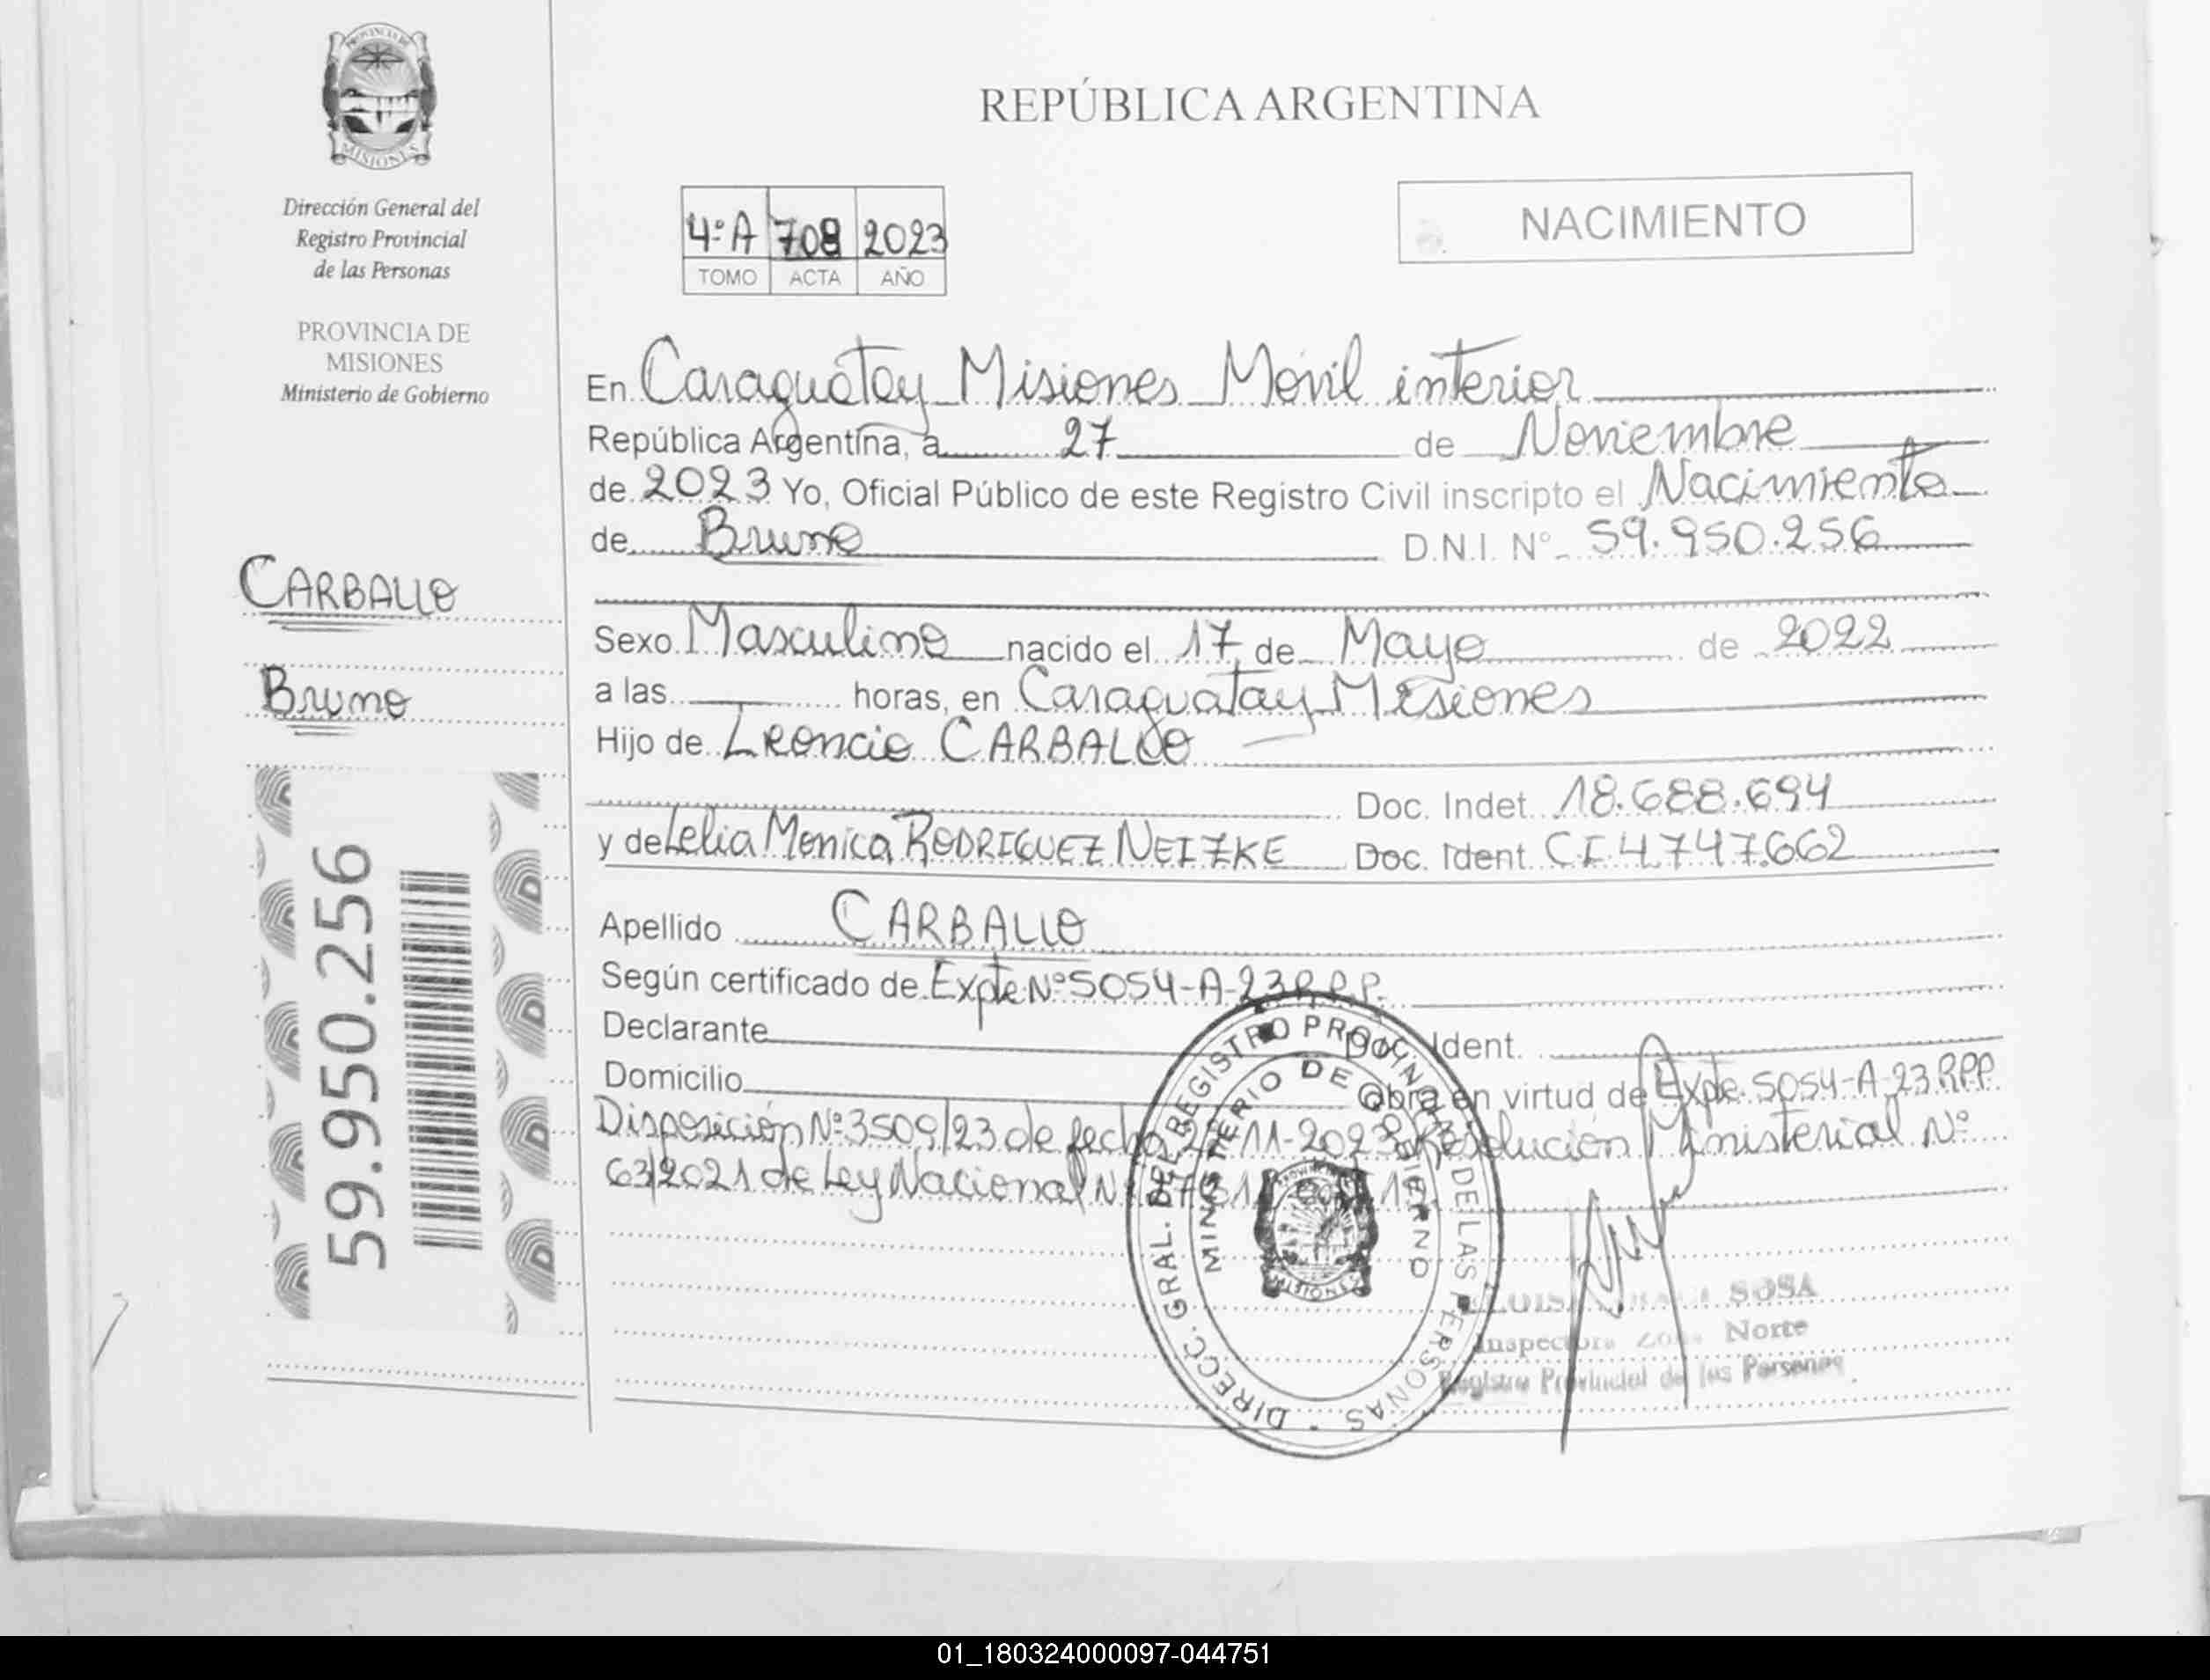 PROVINCIA DE
MISIONES
Dirección General del
Registro Provincial
de las Personas
PROVINCIA DE
MISIONES
Ministerio de Gobierno
CARBALLO
Bruno
59.950.256
REPÚBLICA ARGENTINA
4º A 708 2023
TOMO ACTA AÑO
NACIMIENTO
En Caraguatay Misiones Móvil interior
República Argentina, a 27 de Noviembre
de 2023 Yo, Oficial Público de este Registro Civil inscripto el Nacimiento
de Bruno D.N.I. Nº 59.950.256
Sexo Masculino nacido el 17 de Mayo de 2022
a las horas, en Caraguatay Misiones
Hijo de Leoncio CARBALLO
Doc. Indet. 18.688.694
y de Lelia Monica RODRIGUEZ NEIZKE Doc. Ident. CI 4.747.662
Apellido CARBALLO
Según certificado de Expte Nº 5054-A-23 R.P.P.
Declarante Doc. Ident.
Domicilio Obra en virtud de Expte. 5054-A-23 RPP.
Disposición Nº 3509/23 de fecha 11-2023 Resolución Ministerial Nº
63/2021 de Ley Nacional
DIRECC. GRAL. DEL REGISTRO PROVINCIAL DE LAS PERSONAS
MINISTERIO DE GOBIERNO
MISIONES
SOSA
Inspectora Zona Norte
Registro Provincial de las Personas
01_180324000097-044751